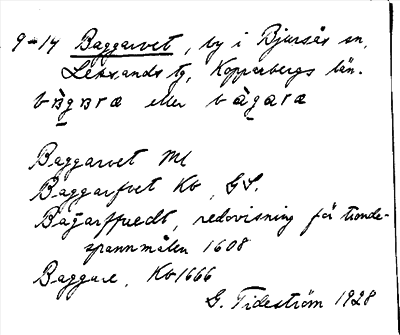 9-14 Baggarvet, by i Bjursås sn,
Leksands tg, Kopparbergs län.
bàgara eller bàgara
Baggarvet Ml
Baggarfvet Kb, GS.
Bagarffuedt, redovisning för tionde-
spannmålen 1608
Baggare, Kb 1666
G. Tideström 1928